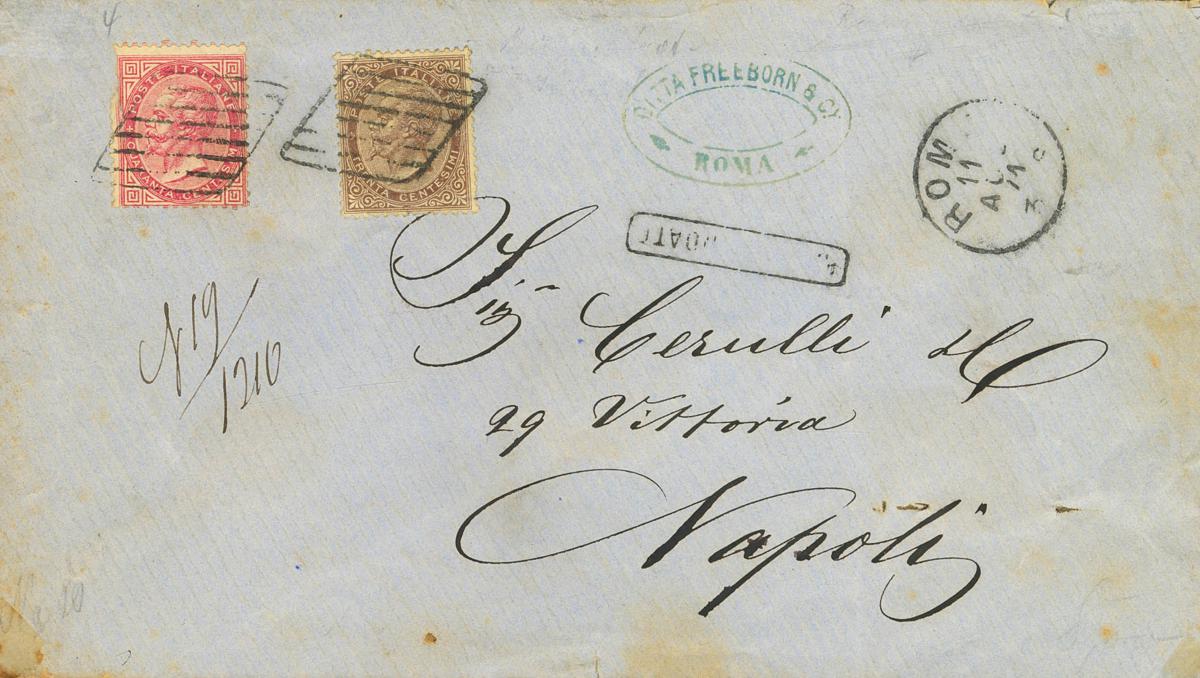 4
POSTE ITALIANE
QUARANTA CENTESIMI
POSTE ITALIANE
TRENTA CENTESIMI
DITTA FREEBORN & CY
ROMA
ROMA
11
AG
71
3
N 19/1210
Sig Cerulli &C
29 Vittoria
Napoli